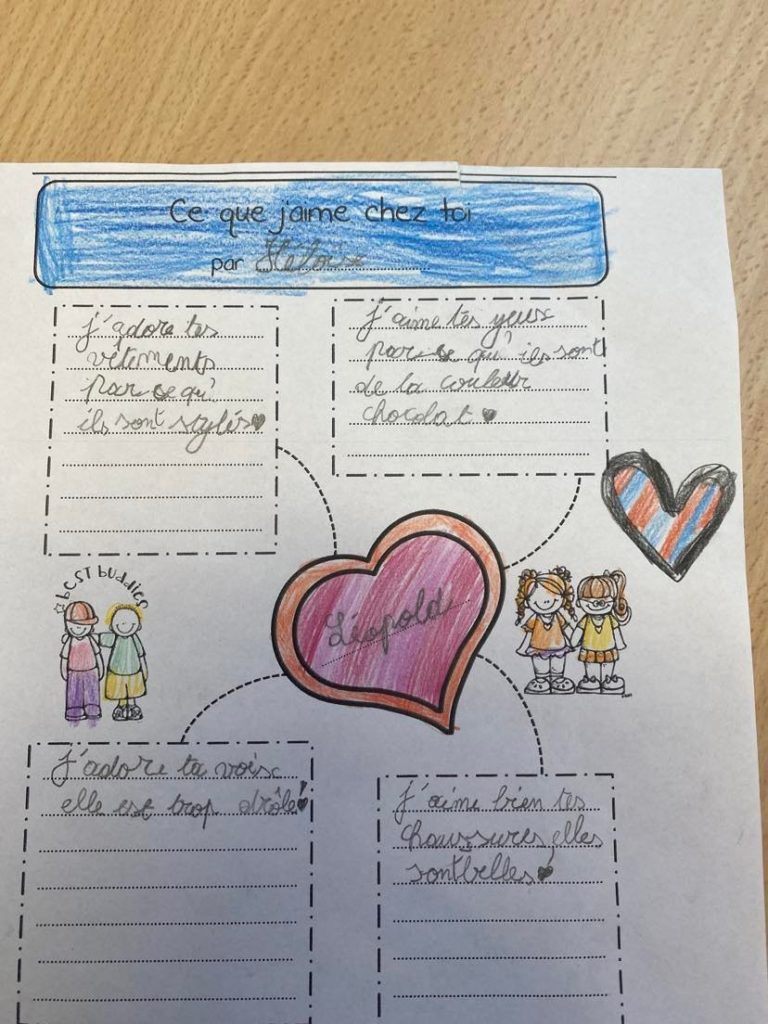 Ce que j'aime chez toi
par Héloïse
j'adore tes
vêtements
parce qu'
ils sont stylés
j'aime tes yeux
parce qu'ils sont
de la couleur
chocolat
best buddies
Léopold
J'adore ta voix
elle est trop drôle!
j'aime bien tes
chaussures, elles
sont belles!